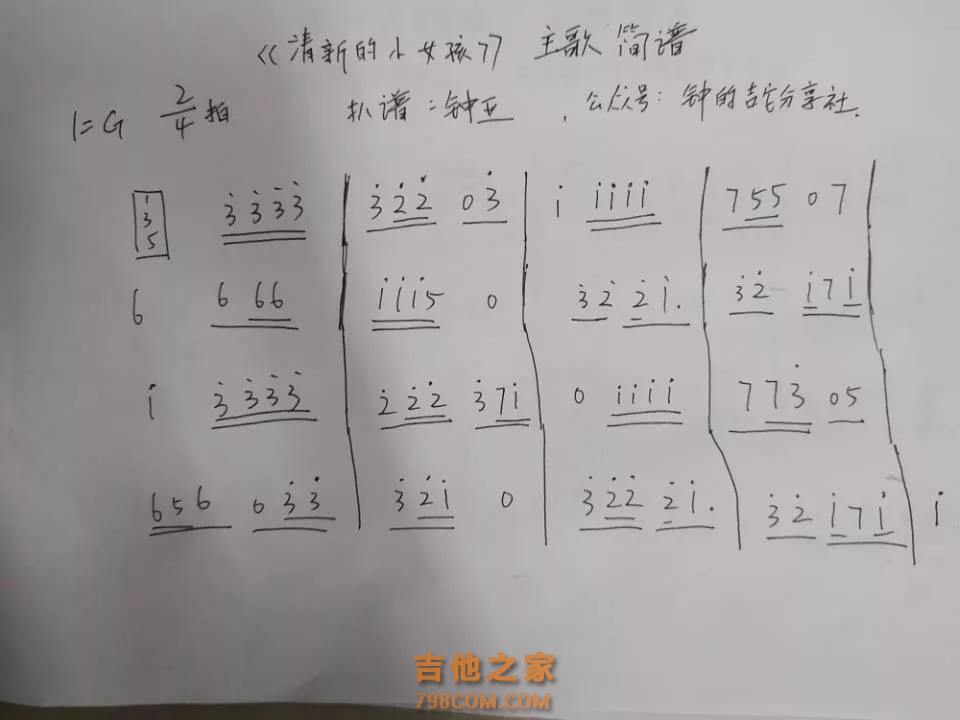 《清新的小女孩》 主歌 简谱
1=G 2/4拍 扒谱：钟亚 ，公众号：钟的吉它分享社.
i35 3̇3̇3̇3̇ | 3̇2̇2̇ 03̇ | i iiii | 755 07 |
6 666 | iii5 0 | 3̇2̇ 2̇i. | 3̇2̇ i7i |
i 3̇3̇3̇3̇ | 2̇2̇2̇ 3̇7i | 0 iiii | 773̇ 05 |
656 03̇3̇ | 3̇2̇i 0 | 3̇2̇2̇ 2̇i. | 3̇2̇ i7i | i
吉他之家
798COM.COM